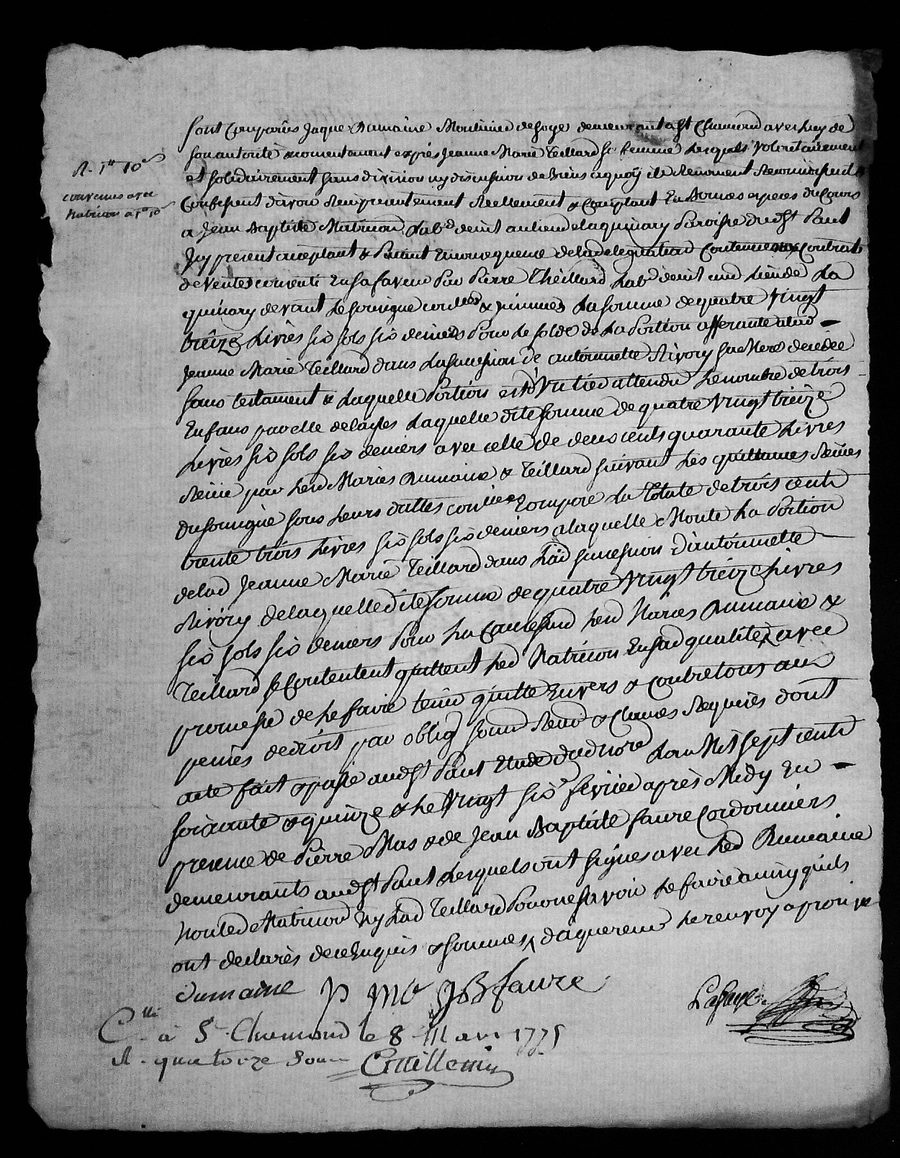 R. 1# 10s
convenus avec
Matricon a 1# 10s
sont Comparûs Jaque Dumaine Moulinie de soye demeurant a St Chamond avec luy de
son autorité Jeanne Marie Teillard sa femme lesquels volontairement
et solidairement sans division ny discussion de biens aquoy ils Renoncent
Confessent d'avoir Reçu presentement Reellement & Comptant En Bonnes especes du Cours
a Jean Baptiste Matricon Labr demt au lieu de laquinary Paroisse dudt St Paul
Icy present acceptant & Paiant En consequence de la delegation Contenue au Contrat
de vente consenti En sa faveur Par Pierre Theillard Labr demt aud lieu de La
quinary devant le soussigné & La somme de quatre Vingt
treize Livres six sols six deniers Pour le solde de La Portion afferante a lad
Jeanne Marie Teillard dans la succession de antoinette Rivory sa Mere decedée
sans testament & Laquelle Portion est d'un tier attendu Le nombre de trois
Enfans par elle delaissés Laquelle dite somme de quatre Vingt treize
Livres six sols six deniers avec celle de deux cents quarante Livres
Reçue par Led Mariés Dumaine & Teillard suivant Les quittances Reçues
du soussigné sous Leurs dattes compose La totale de trois cents
trente trois Livres six sols six deniers a laquelle Monte La Portion
de lad Jeanne Marie Teillard dans Lad succession d'antoinette
Rivory de laquelle dite somme de quatre Vingt treize Livres
six sols six deniers Pour La Cause sud Led Mariés Dumaine &
Teillard se Contentent quittent Led Matricon En sad qualité avec
promesse de Le faire tenir quitte Envers & Contre tous aux
peines de droit par oblig soum Renon & Clauses Requises dont
acte fait & passé audt St Paul Etude dud nore Lan Mil sept cents
soixante & quinze & Le Vingt six fevrier après Midy En
presence de Pierre Mas & de Jean Baptiste faure Cordonniers
demeurants audt St Paul Lesquels ont signes avec Led Dumaine
Non led Matricon Ny Lad Teillard Pour ne savoir Le faire ainsy qu'ils
ont declarés de ce Enquis & sommes daquereur Le renvoy aprouvé
dumaine P Mas JB faure Lafayë
Clle à St Chamond le 8 Mars 1775
R. quatorze sous Guillemin